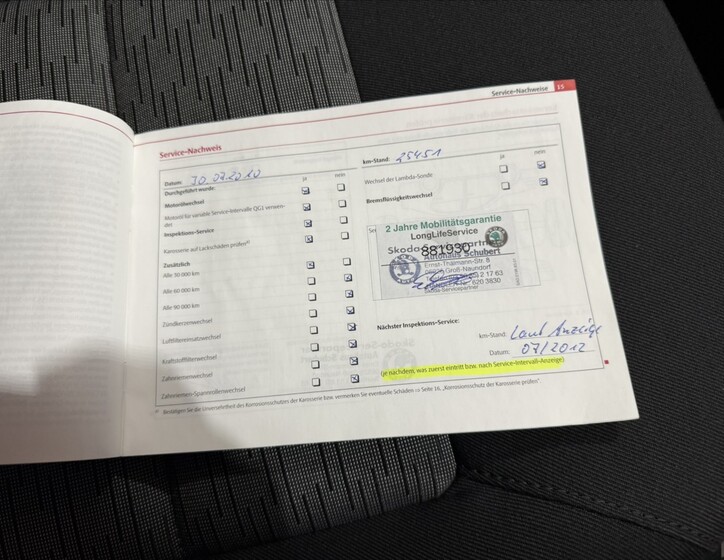 Service-Nachweise 15
Service-Nachweis
Datum: 30.07.2010
ja nein
Durchgeführt wurde:
Motorölwechsel
Motoröl für variable Service-Intervalle QG1 verwen-
det
Inspektions-Service
Karosserie auf Lackschäden prüfen
Zusätzlich
Alle 30 000 km
Alle 60 000 km
Alle 90 000 km
Zündkerzenwechsel
Luftfiltereinsatzwechsel
Kraftstofffilterwechsel
Zahnriemenwechsel
Zahnriemen-Spannrollenwechsel
km-Stand: 25451
ja nein
Wechsel der Lambda-Sonde
Bremsflüssigkeitswechsel
2 Jahre Mobilitätsgarantie
LongLifeService
881930
Autohaus Schubert
Ernst-Thälmann-Str. 8
Groß-Naundorf
2 17 63
620 3830
Skoda-Servicepartner
Nächster Inspektions-Service:
km-Stand: Laut Anzeige
Datum: 07/2012
(je nachdem, was zuerst eintritt bzw. nach Service-Intervall-Anzeige)
Bestätigen Sie die Unversehrtheit des Korrosionsschutzes der Karosserie bzw. vermerken Sie eventuelle Schäden ⇒ Seite 16, „Korrosionsschutz der Karosserie prüfen".